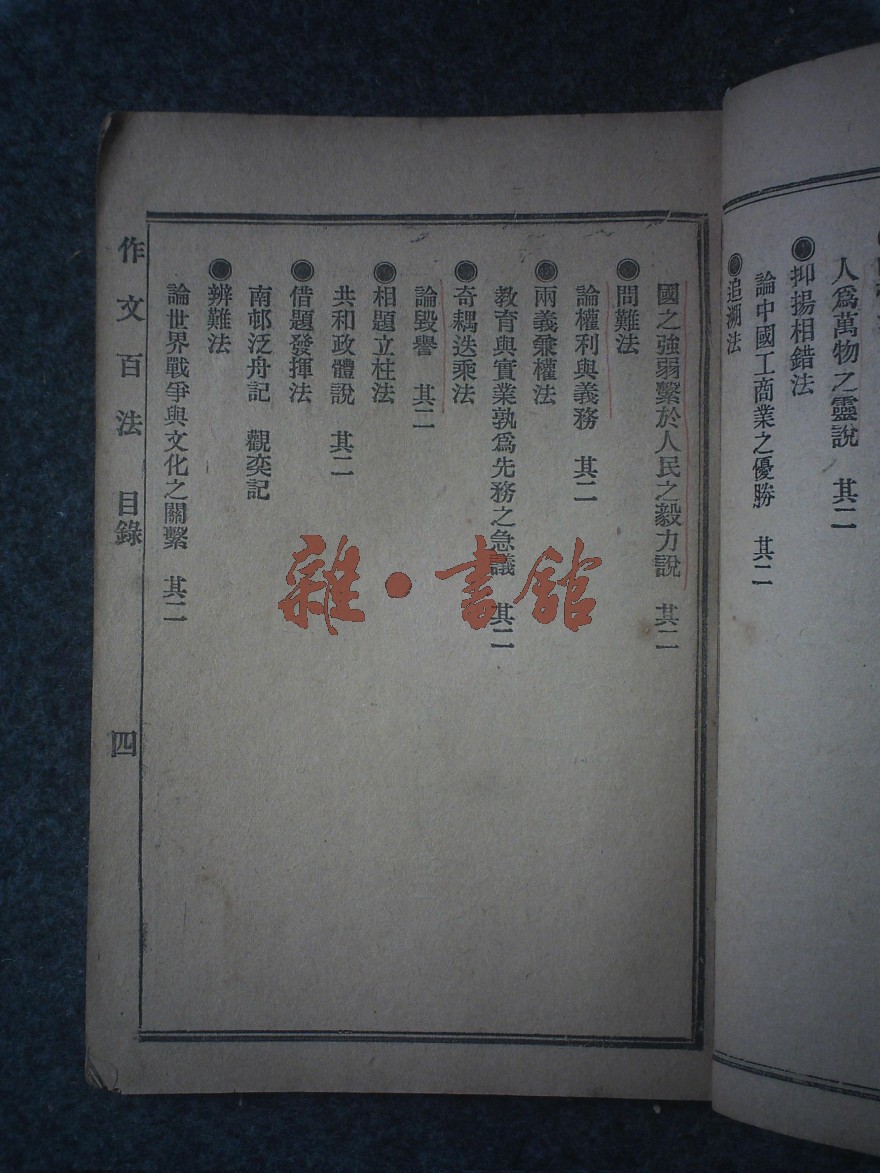 人爲萬物之靈說　其二
●抑揚相錯法
論中國工商業之優勝　其二
●追溯法
國之強弱繫於人民之毅力說　其二
●問難法
論權利與義務　其二
●兩義衆權法
教育與實業孰爲先務之急議　其二
●奇耦迭乘法
論毀譽　其二
●相題立柱法
共和政體說　其二
●借題發揮法
南邨泛舟記　觀奕記
●辨難法
論世界戰爭與文化之關繫　其二
作文百法　目錄　四
雜·書館